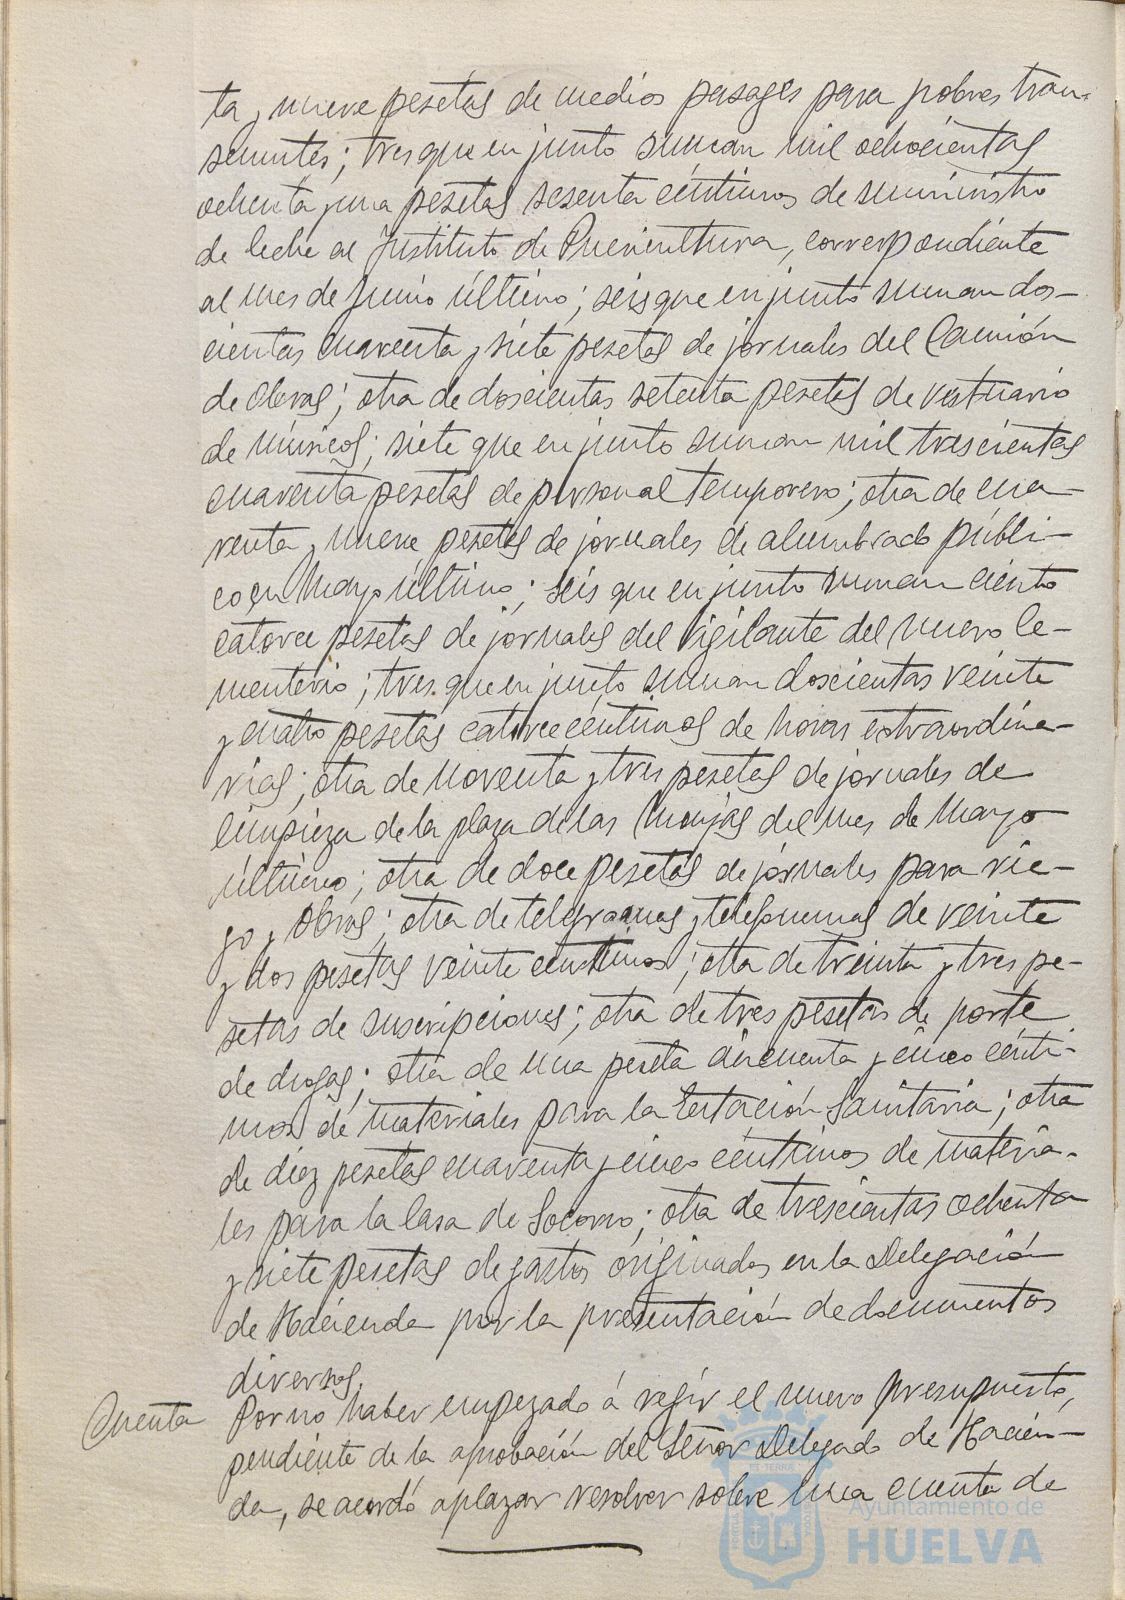 ta y nueve pesetas de medios pasages para pobres tran-
seuntes; tres que en junto suman mil ochocientas
ochenta y una pesetas sesenta céntimos de suministro
de leche al Instituto de Puericultura, correspondiente
al mes de Junio último; seis que en junto suman dos-
cientas cuarenta y siete pesetas de jornales del Camión
de Obras; otra de doscientas setenta pesetas de vestuario
de músicos; siete que en junto suman mil trescientas
cuarenta pesetas de personal temporero; otra de cua-
renta y nueve pesetas de jornales de alumbrado públi-
co en Mayo último; seis que en junto suman ciento
catorce pesetas de jornales del vigilante del nuevo Ce-
menterio; tres que en junto suman doscientas veinte
y cuatro pesetas catorce céntimos de horas extraordina-
rias; otra de noventa y tres pesetas de jornales de
limpieza de la plaza de las Monjas del mes de Marzo
último; otra de doce pesetas de jornales para rie-
go y Obras; otra de telegramas y telefonemas de veinte
y dos pesetas veinte centimos; otra de treinta y tres pe-
setas de suscripciones; otra de tres pesetas de porte
de drogas; otra de una peseta cincuenta y cinco cénti-
mos de materiales para la Estación Sanitaria; otra
de diez pesetas cuarenta y cinco céntimos de materia-
les para la Casa de Socorro; otra de trescientas ochenta
y siete pesetas de gastos originados en la Delegación
de Hacienda por la presentación de documentos
diversos.
Cuenta Por no haber empezado á regir el nuevo presupuesto,
pendiente de la aprobación del Señor Delegado de Hacien-
da, se acordó aplazar resolver sobre una cuenta de
Ayuntamiento de
HUELVA